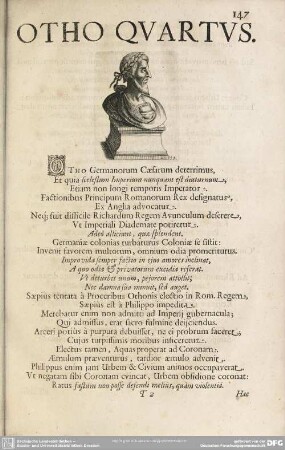 147
OTHO QVARTVS.
OTHO Germanorum Cæsarum deterrimus,
Et quia scelestum Imperium nunquam est diuturnum,
Etiam non longi temporis Imperator.
Factionibus Principum Romanorum Rex designatur,
Ex Anglia advocatur.
Neq; fuit difficile Richardum Regem Avunculum deserere,
Vt Imperiali Diademate potiretur.
Adeò alliciunt, quæ splendent.
Germaniæ colonias turbaturus Coloniæ se sistit:
Invenit favorem multorum, omnium odia promeriturus.
Improvida semper factio in ejus amores inclinat,
A quo odia & privatorum excidia referat.
Vt deturbet unum, pejorem attollit;
Nec damna sua movent, sed auget.
Sæpius tentata à Proceribus Othonis electio in Rom. Regem,
Sæpius est à Philippo impedita.
Merebatur enim non admitti ad Imperij gubernacula;
Qui admissus, erat sacro fulmine dejiciendus.
Arceri potius à purpura debuisset, ne ei probrum faceret,
Cujus turpissimis moribus inhæreret.
Electus tamen, Aquas properat ad Coronam,
Æmulum præventurus, tardior æmulo advenit,
Philippus enim jam Urbem & Civium animos occupaverat,
Vt negatam sibi Coronam evincat, Urbem obsidione coronat:
Ratus fastum non posse dejendo melius, quàm violentia.
T 2
Hac